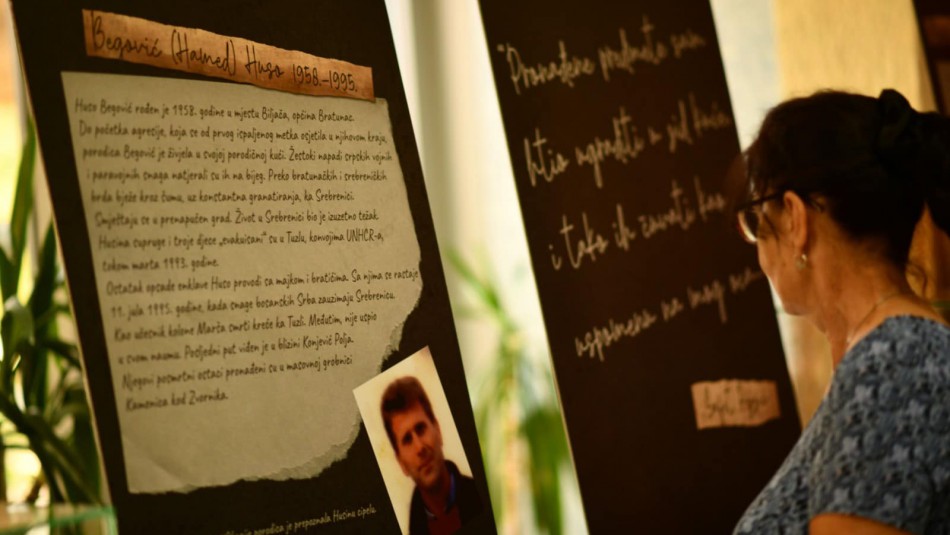 Begović (Hamed) Huso 1958.-1995.
Huso Begović rođen je 1958. godine u mjestu Biljača, općina Bratunac.
Do početka agresije, koja se od prvog ispaljenog metka osjetila u njihovom kraju,
porodica Begović je živjela u svojoj porodičnoj kući. Žestoki napadi srpskih vojnih
i paravojnih snaga natjerali su ih na bijeg. Preko bratunačkih i srebreničkih
brda bježe kroz šumu, uz konstantna granatiranja, ka Srebrenici.
Smještaju se u prenapučen grad. Život u Srebrenici bio je izuzetno težak.
Husina supruge i troje djece „evakuisani" su u Tuzlu, konvojima UNHCR-a,
tokom marta 1993. godine.
Ostatak opsade enklave Huso provodi sa majkom i bratićima. Sa njima se rastaje
11. jula 1995. godine, kada snage bosanskih Srba zauzimaju Srebrenicu.
Kao učesnik kolone Marša smrti kreće ka Tuzli. Međutim, nije uspio
u svom naumu. Posljednji put viđen je u blizini Konjević Polja.
Njegovi posmrtni ostaci pronađeni su u masovnoj grobnici
Kamenica kod Zvornika.
porodica je prepoznala Husinu cipelu.
"Pronađene predmete sam
htio ugraditi u
i tako ih
uspomena na mog